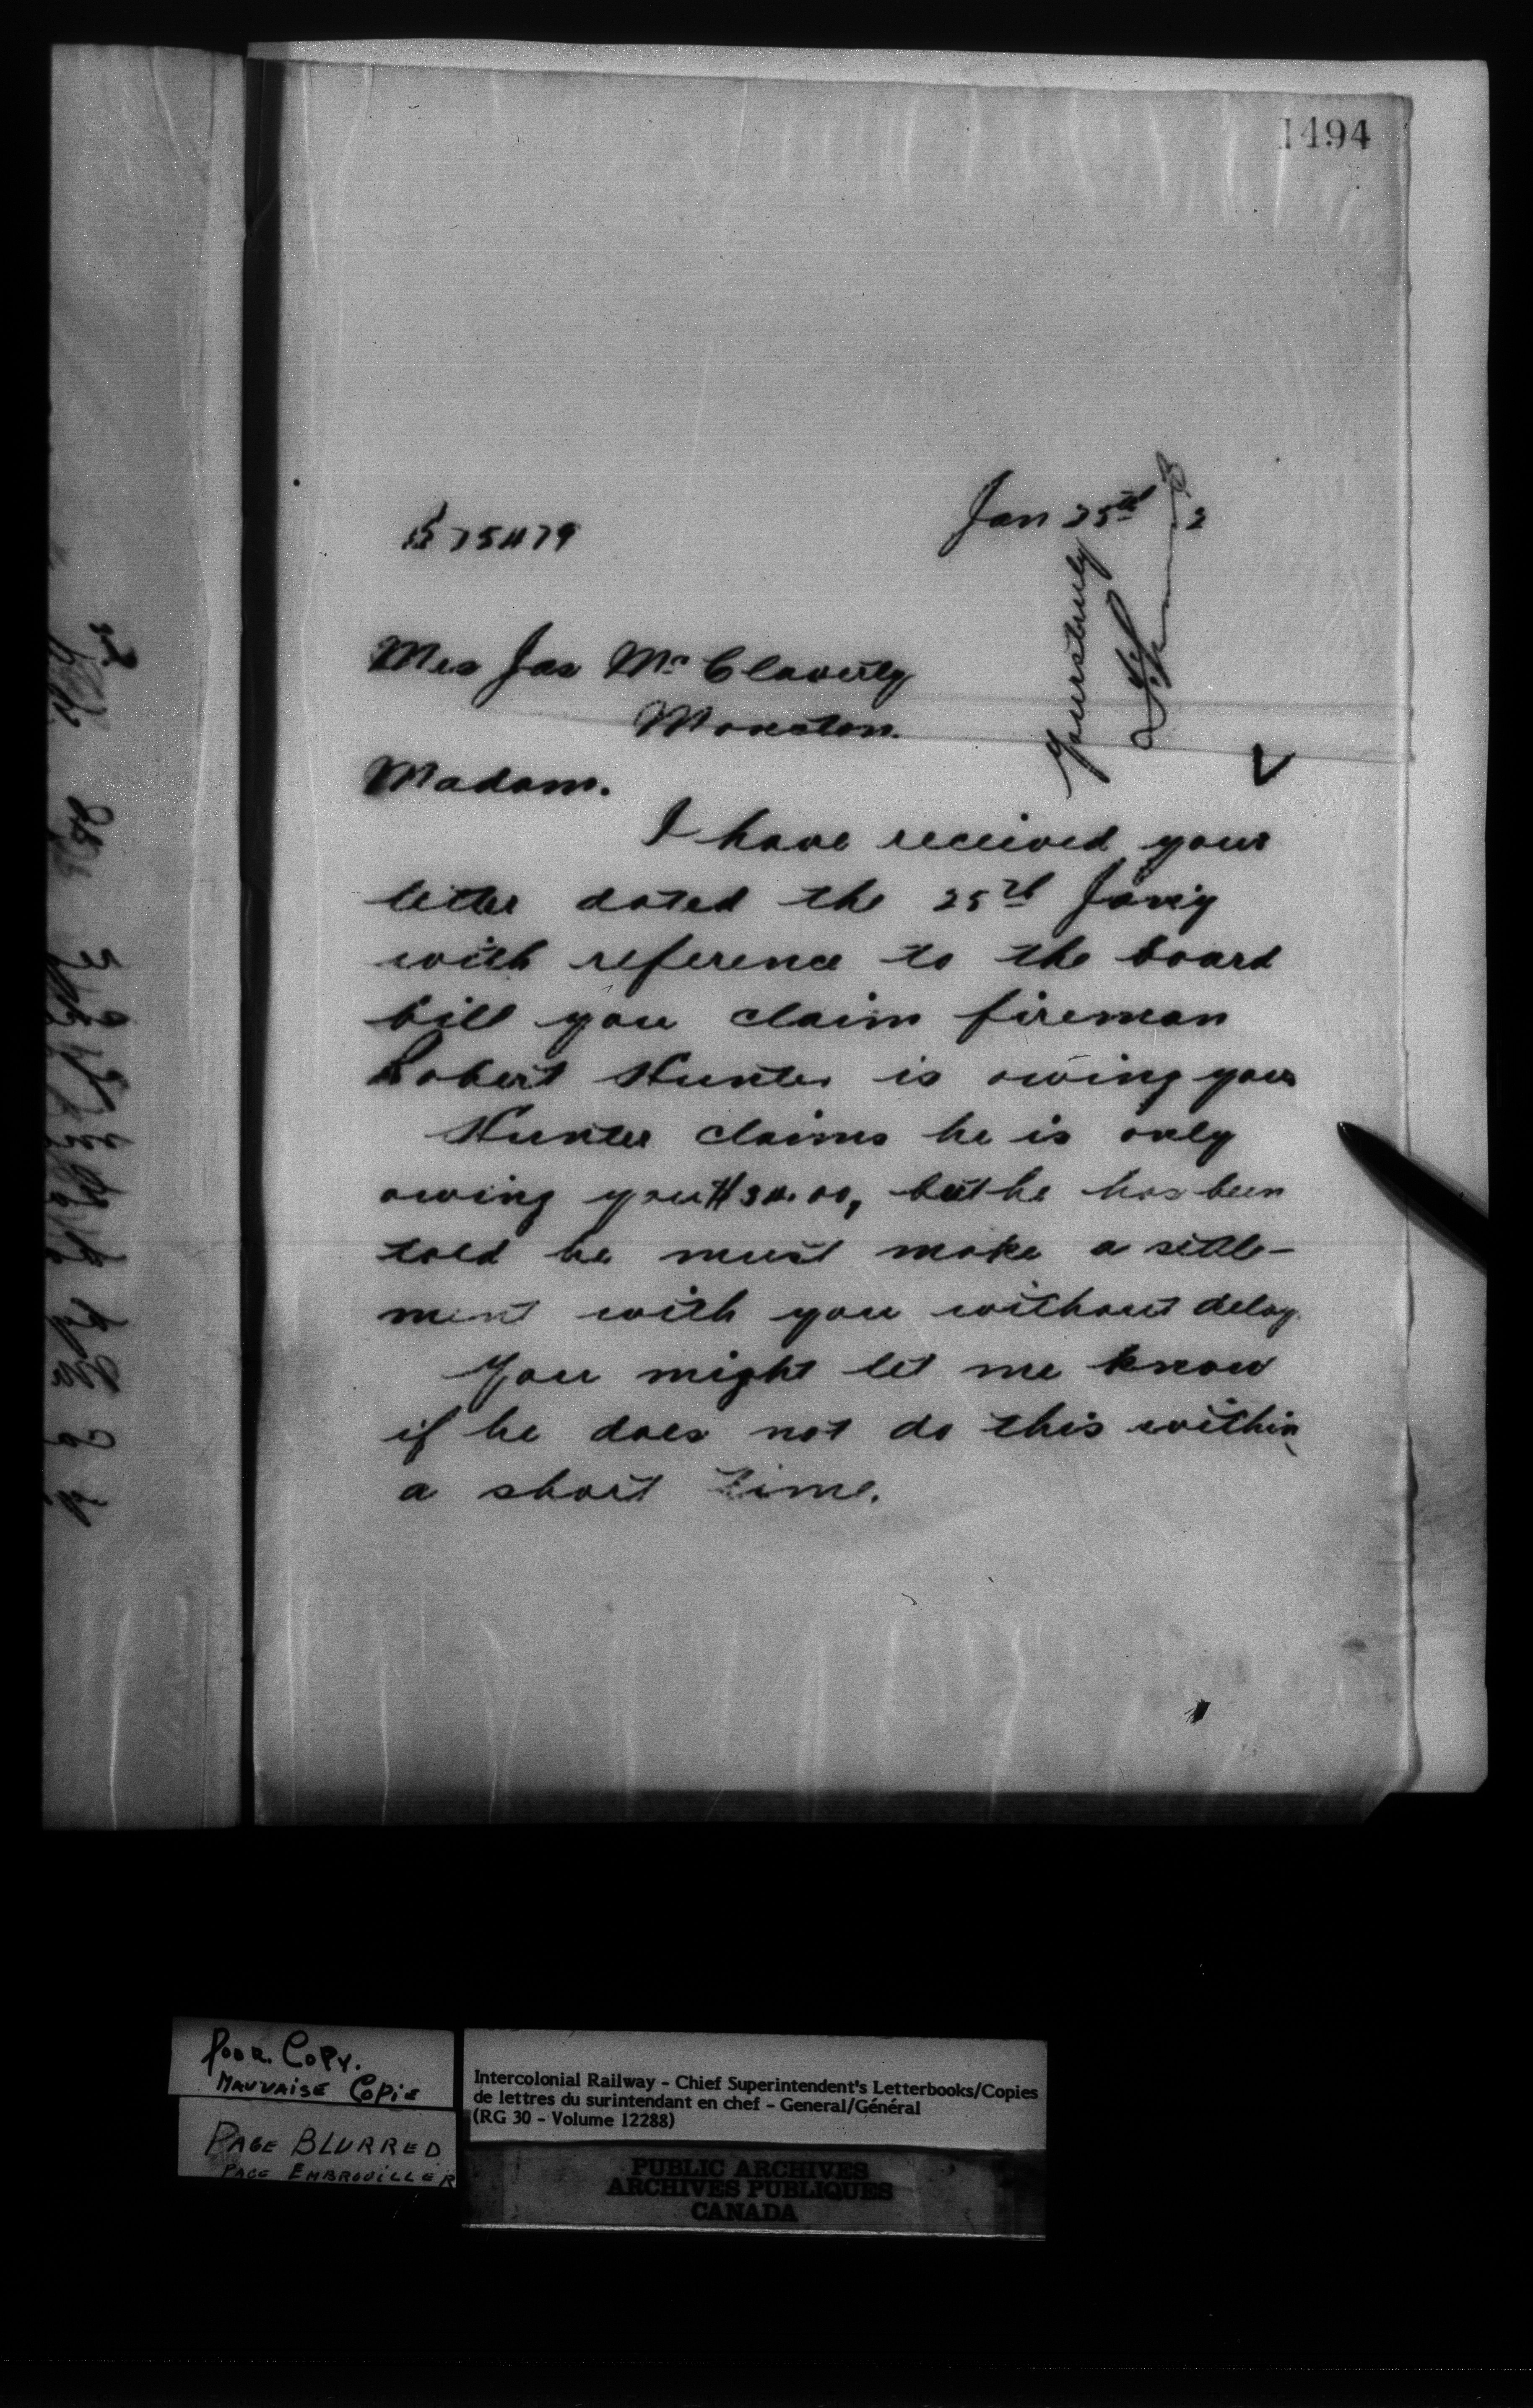 1494
Jan 25th 2
B 75479
Mrs Jas McClaverty
Moncton.
Madam.
I have received your
letter dated the 25th Jan'y
with reference to the board
bill you claim fireman
Robert Hunter is owing you
Hunter claims he is only
owing you $34.00, but he has been
told he must make a settle-
ment with you without delay.
You might let me know
if he does not do this within
a short time.
Yours truly
POOR. COPY.
MAUVAISE COPIE
PAGE BLURRED
PAGE EMBROUILLER
Intercolonial Railway - Chief Superintendent's Letterbooks/Copies
de lettres du surintendant en chef - General/Général
(RG 30 - Volume 12288)
PUBLIC ARCHIVES
ARCHIVES PUBLIQUES
CANADA